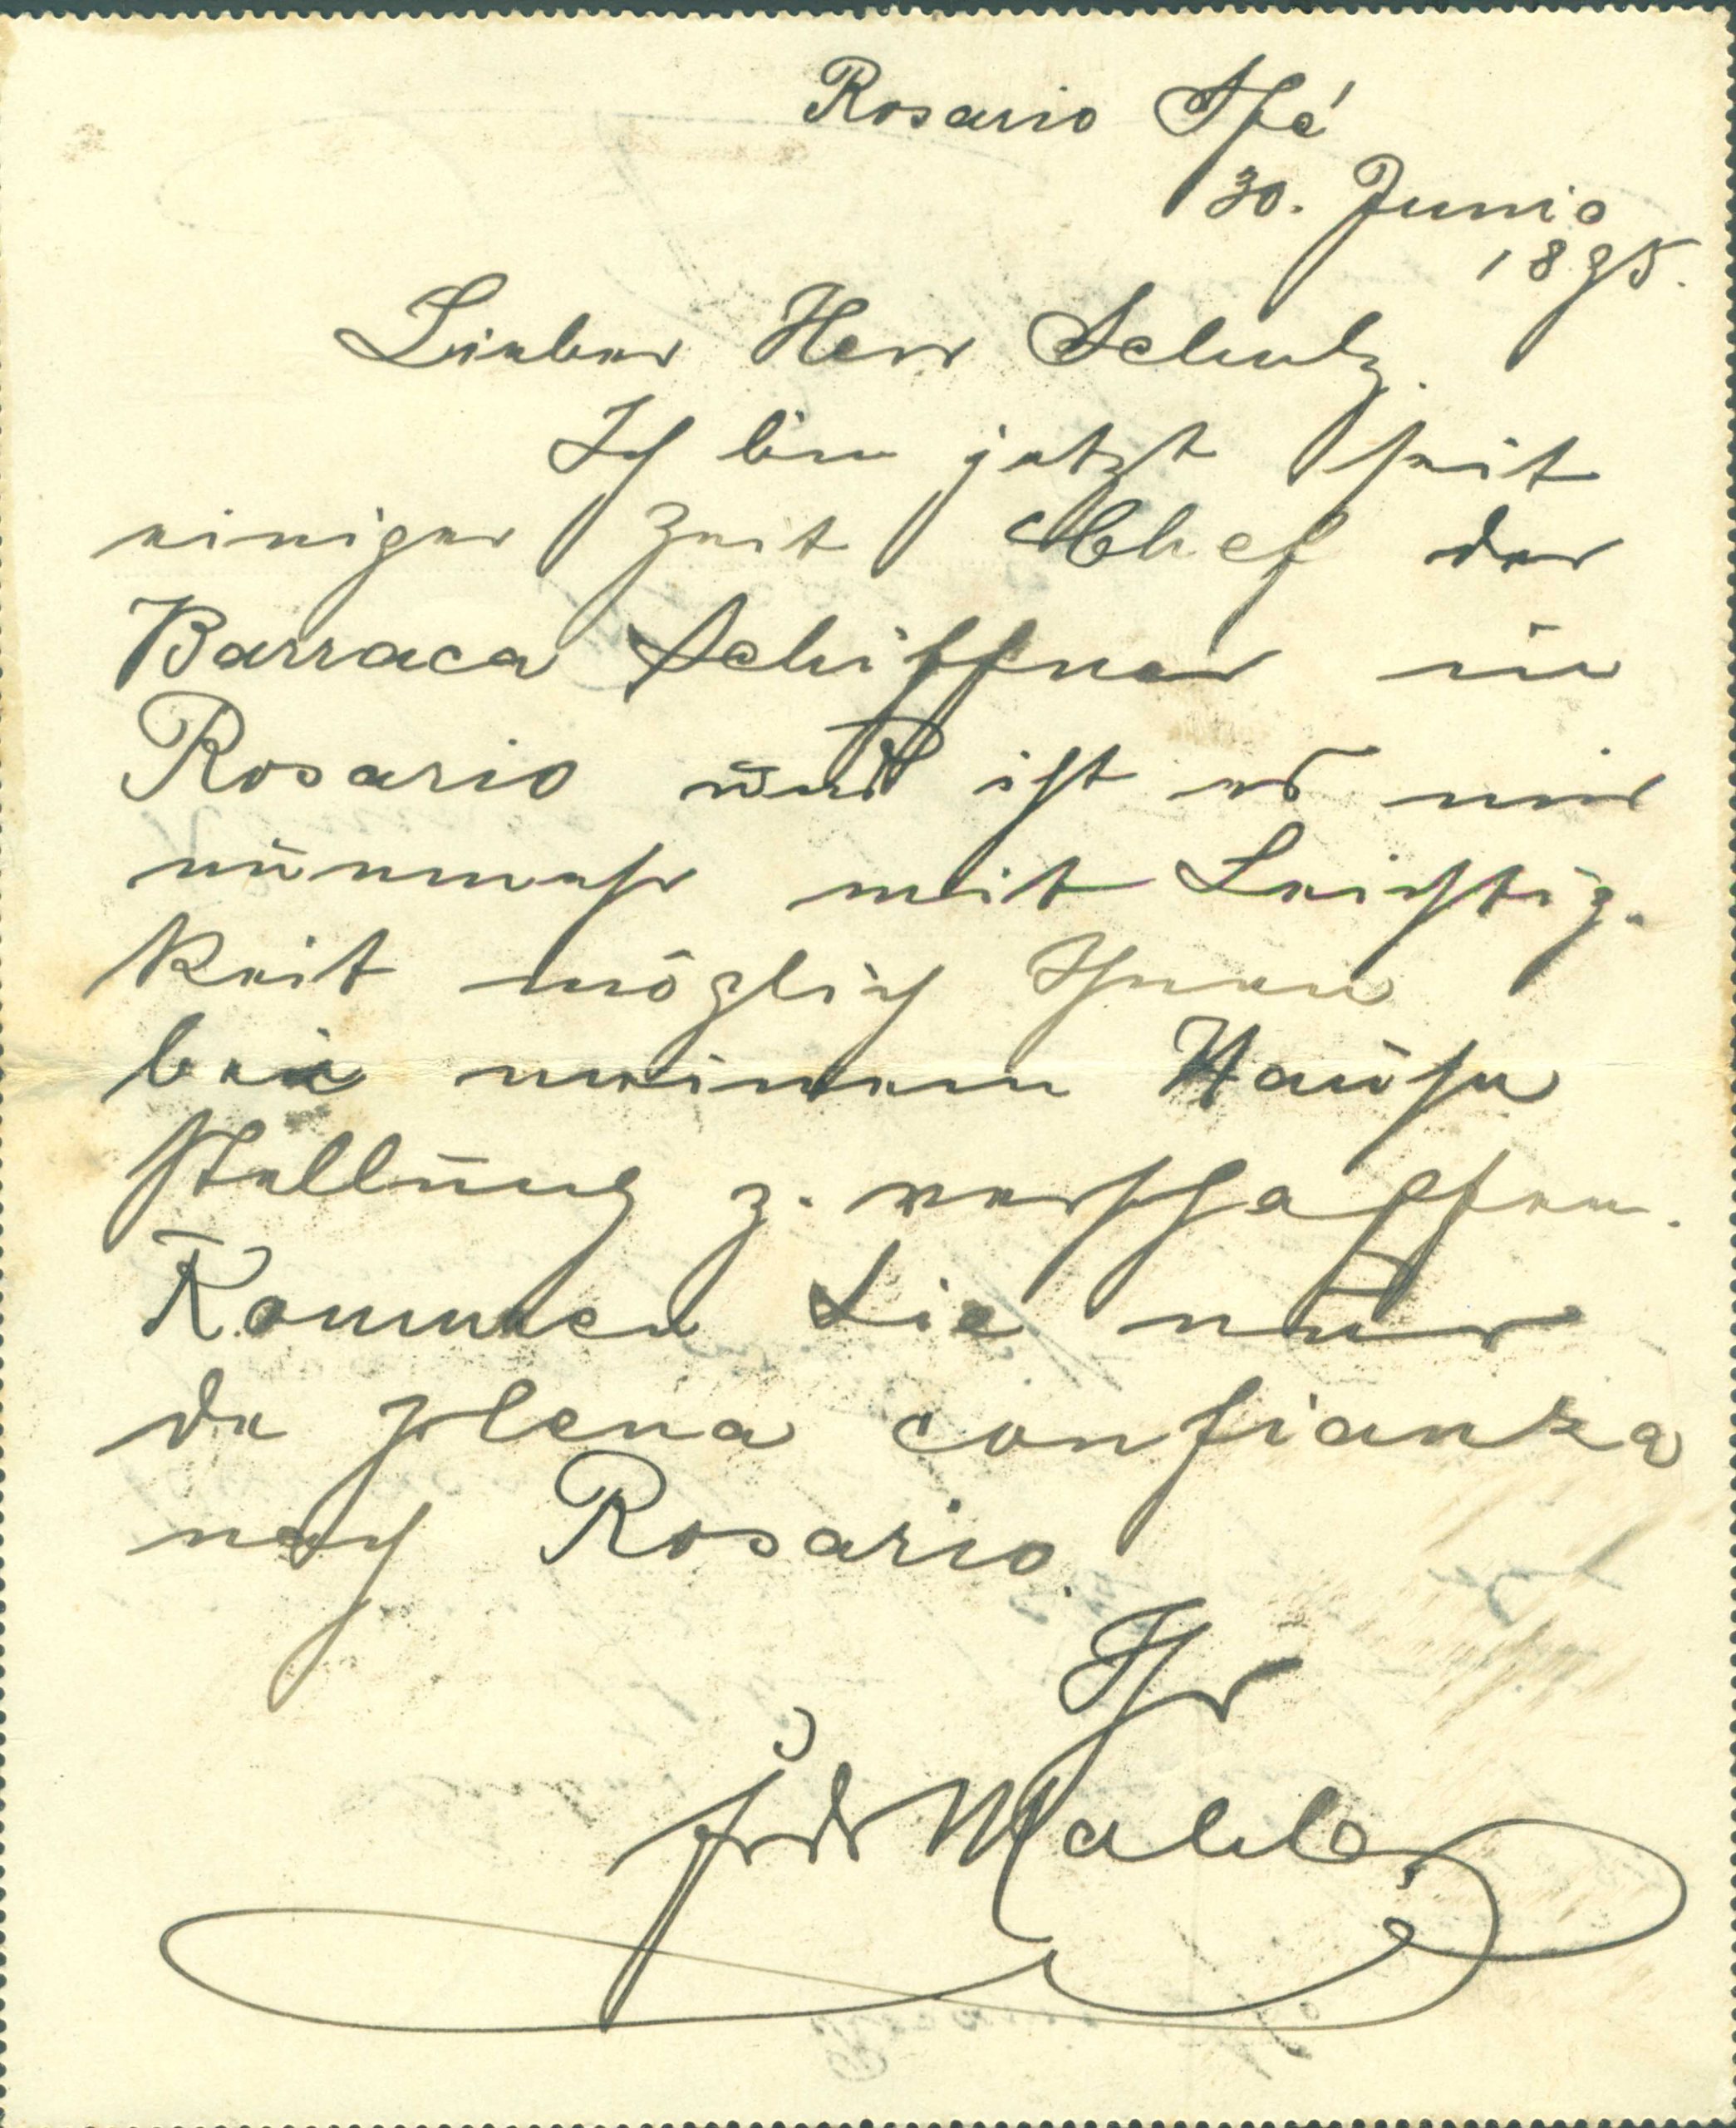 Rosario Sfé
30. Junio
1895.
Lieber Herr Schulz.
Ich bin jetzt seit
einiger Zeit Chef der
Barraca Schiffner in
Rosario und ist es mir
nunmehr mit Leichtig-
keit möglich Ihnen
bei meinem Hause
Stellung z. verschaffen.
Kommen Sie nur
de plena confianza
nach Rosario.
Ihr